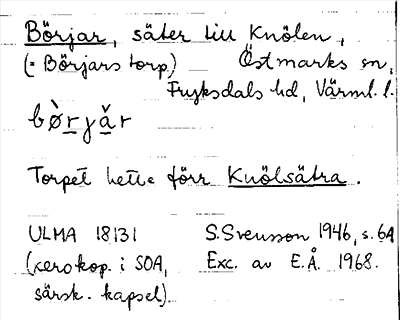 Börjar, säter till Knölen,
(= Börjars torp) Östmarks sn,
Fryksdals hd, Värml. l.
bø̀rjăr
Torpet hette förr Knölsätra.
ULMA 18131 S. Svensson 1946, s. 6A
(xerokop. i SOA, Exc. av E.Å. 1968.
särsk. kapsel).